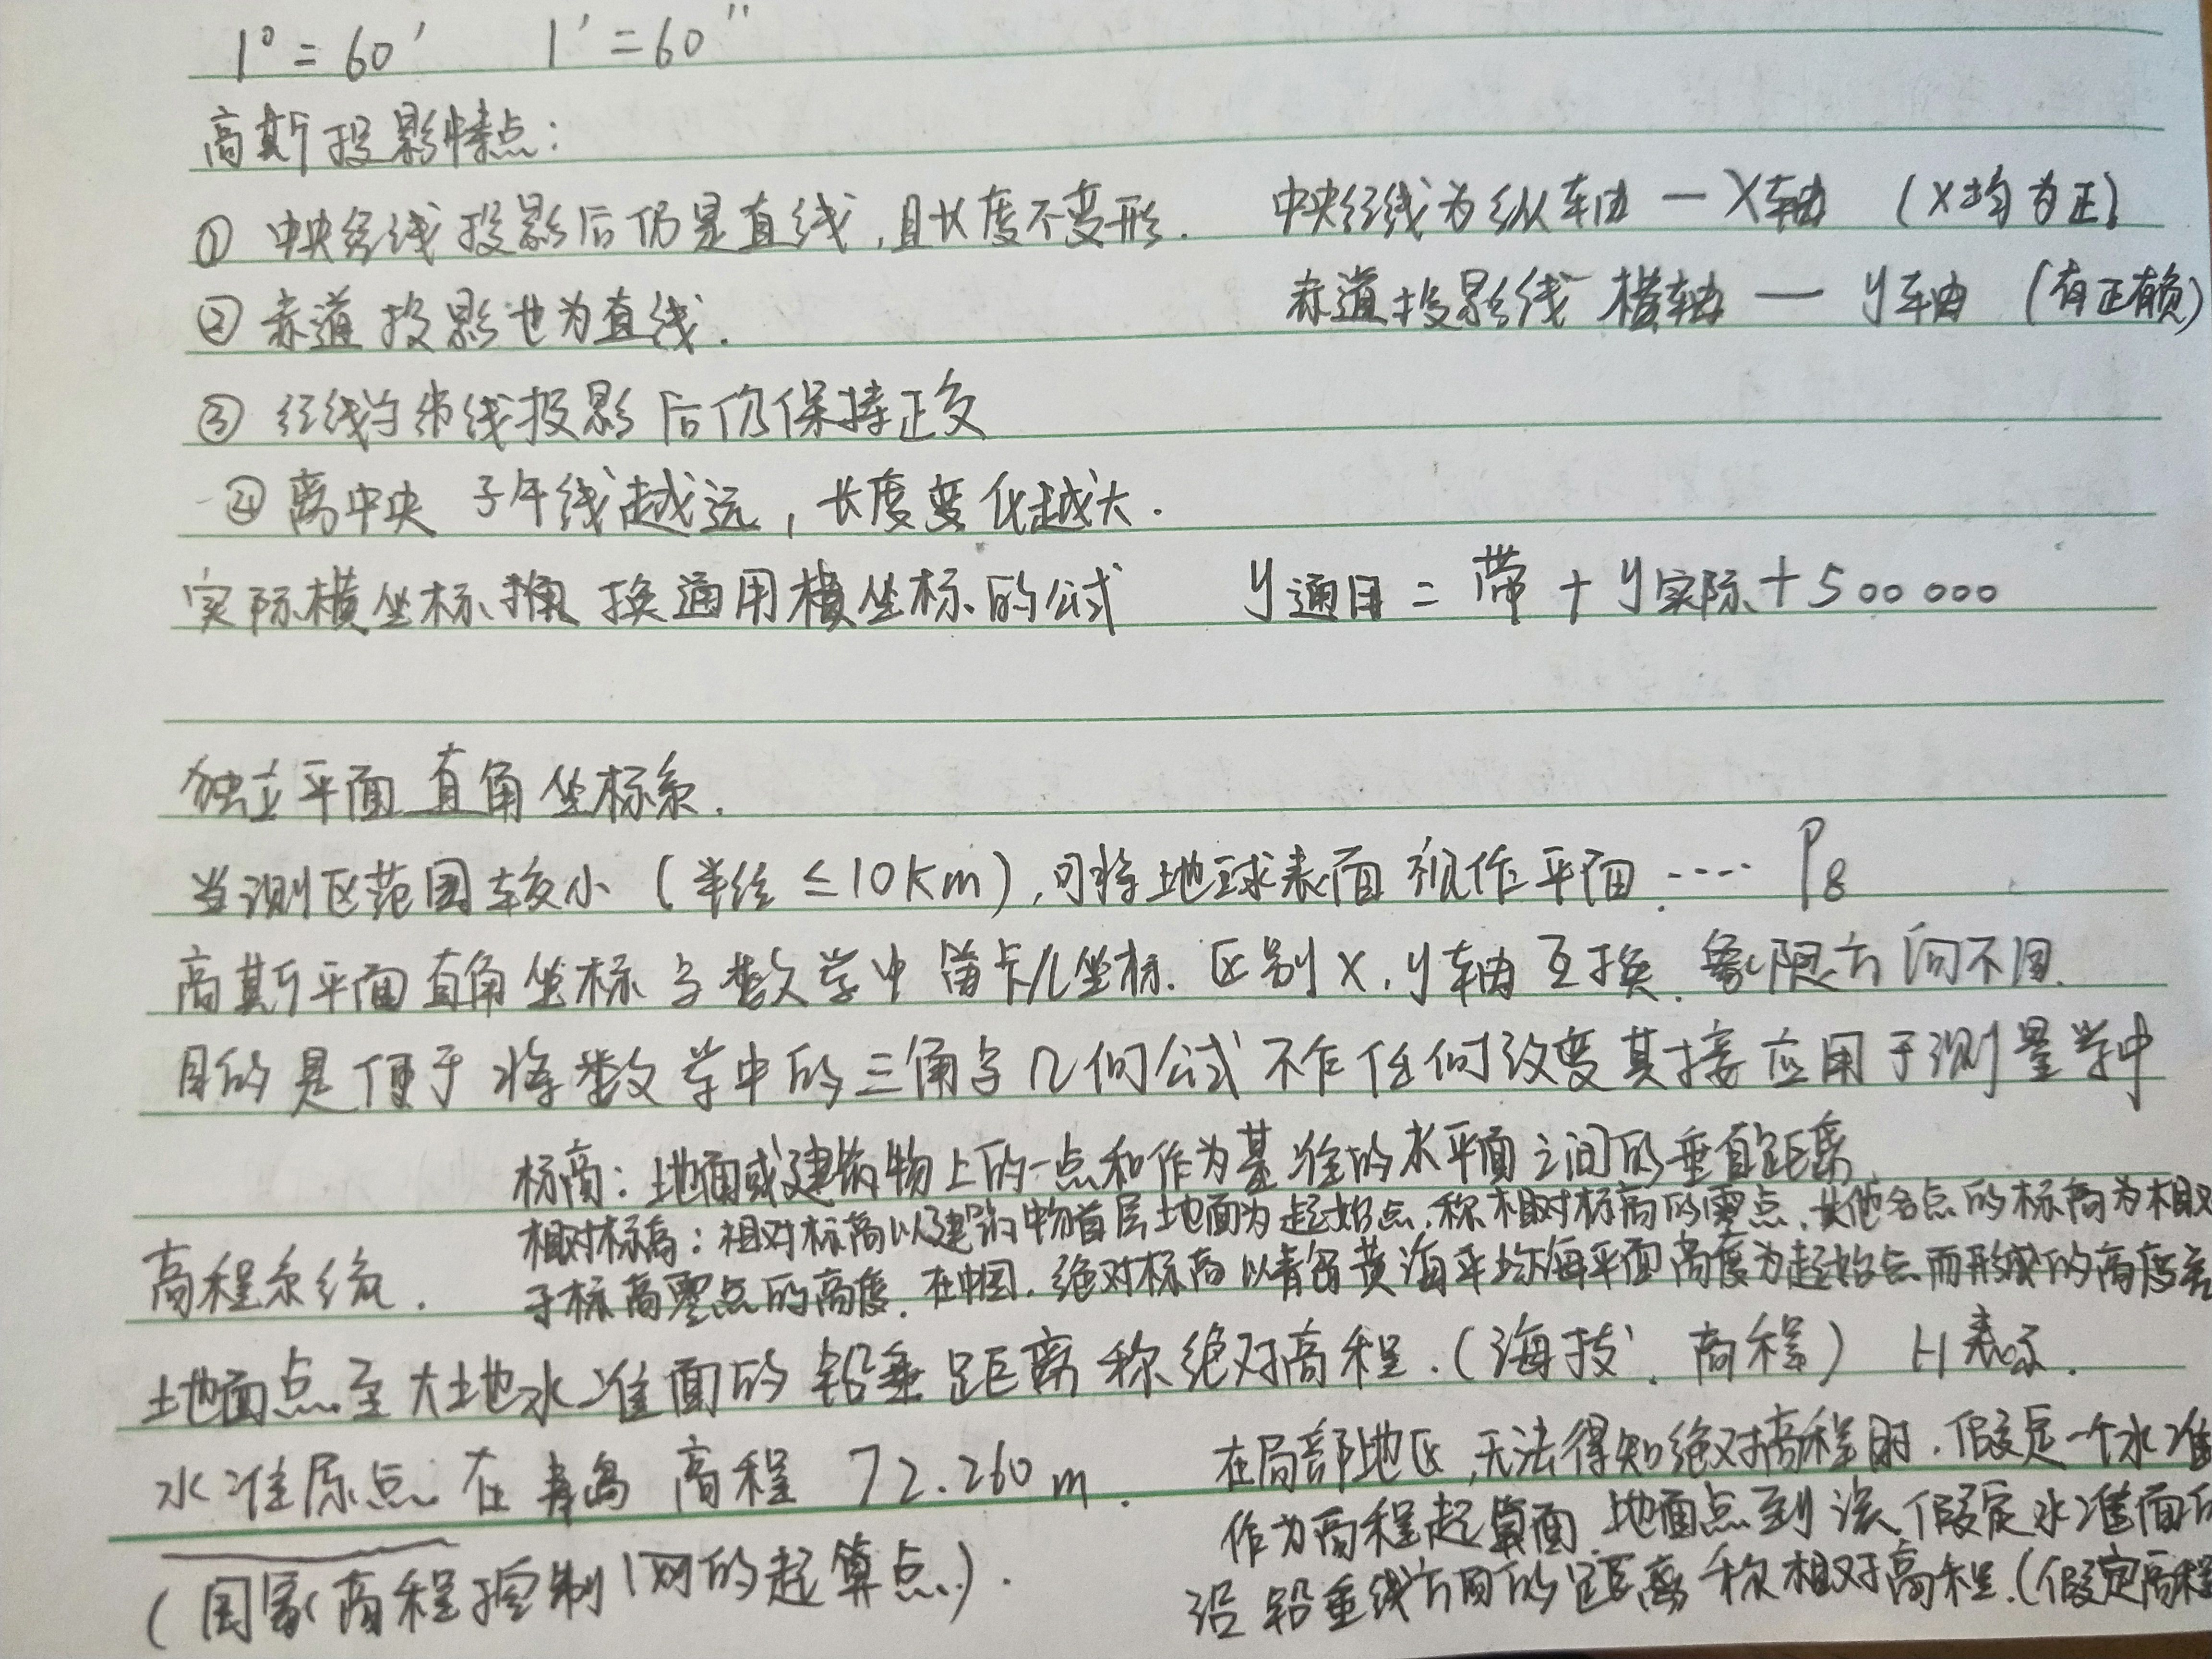 1°=60′ 1′=60″
高斯投影特点:
① 中央经线投影后仍是直线,且长度不变形. 中央经线为纵轴 — X轴 (X均为正)
② 赤道投影也为直线. 赤道投影线 横轴 — y轴 (有正有负)
③ 经线与纬线投影后仍保持正交
④ 离中央子午线越远,长度变化越大.
实际横坐标 换通用横坐标的公式 y通用=带+y实际+500 000
独立平面直角坐标系.
当测区范围较小(半径≤10Km),可将地球表面视作平面..... P8
高斯平面直角坐标与数学中笛卡儿坐标.区别X,y轴互换.象限方向不同.
目的是便于将数学中的三角与几何公式不作任何改变直接应用于测量学中
标高:地面或建筑物上的一点和作为基准的水平面之间的垂直距离
相对标高:相对标高以建筑物首层地面为起始点,称相对标高的零点,其他各点的标高为相对
高程系统. 于标高零点的高度.在中国.绝对标高以青岛黄海平均海平面高度为起始点而形成的高度差
地面点至大地水准面的铅垂距离称绝对高程.(海拔、高程) H表示.
水准原点在青岛 高程 72.260m. 在局部地区,无法得知绝对高程时.假定一个水准
作为高程起算面.地面点到该假定水准面的
(国家高程控制网的起算点). 沿铅垂线方向的距离称相对高程.(假定高程